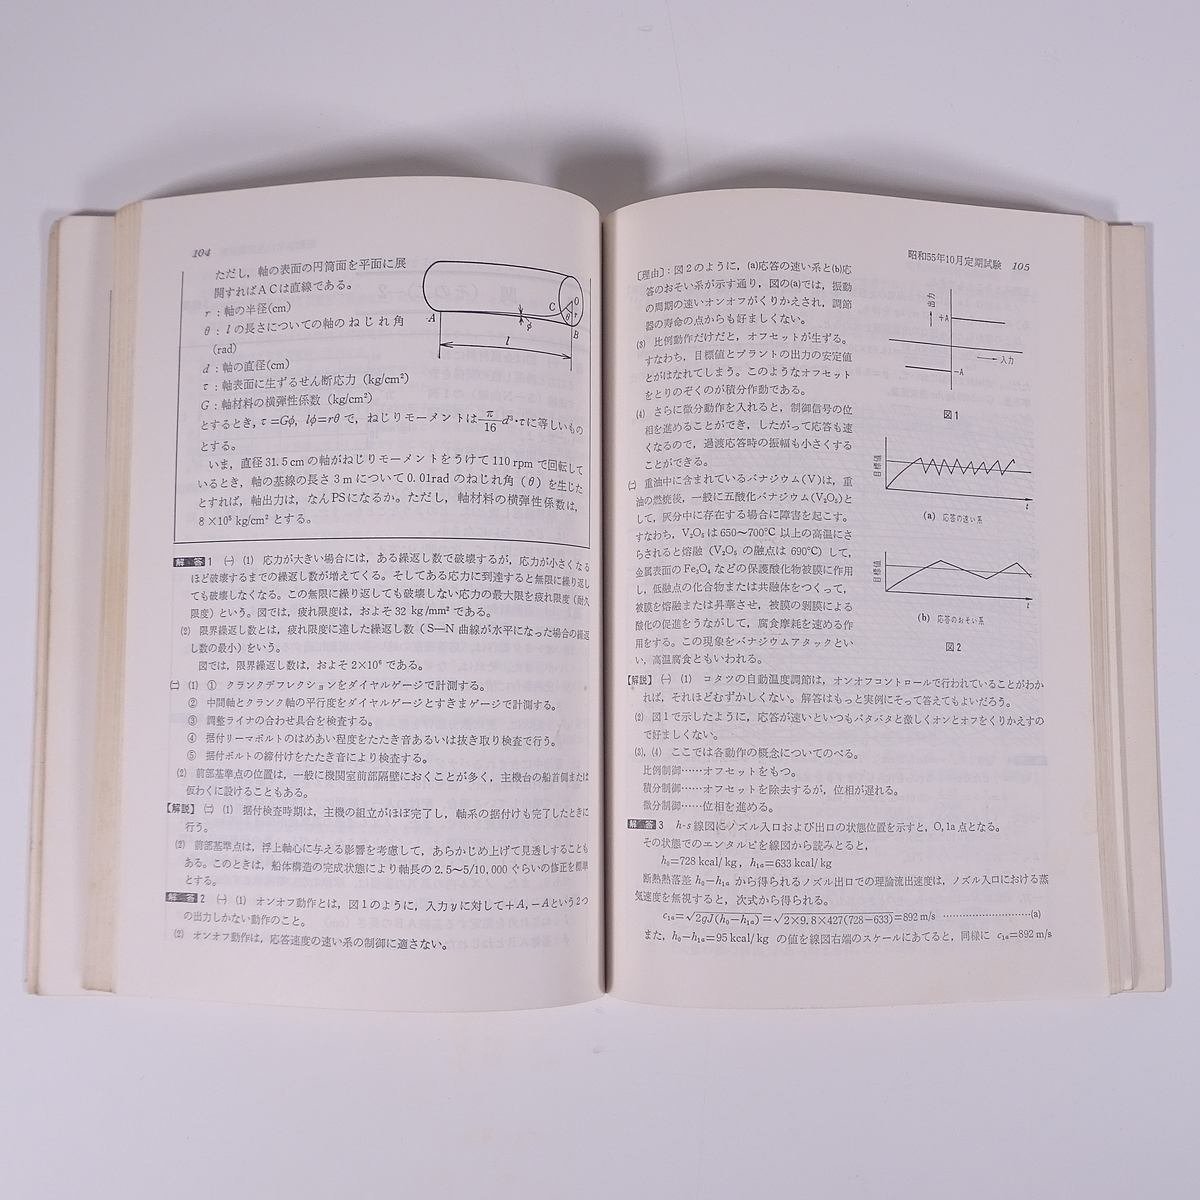 104
ただし，軸の表面の円筒面を平面に展
開すればＡＣは直線である。
r：軸の半径(cm)
θ：lの長さについての軸のねじれ角
(rad)
d：軸の直径(cm)
τ：軸表面に生ずるせん断応力（kg/cm²）
G：軸材料の横弾性係数（kg/cm²）
とするとき，τ=Gφ，lφ=rθで，ねじりモーメントはπ/16 d³・τに等しいもの
とする。
いま，直径31.5cmの軸がねじりモーメントをうけて110 rpmで回転して
いるとき，軸の基線の長さ3mについて0.01radのねじれ角（θ）を生じた
とすれば，軸出力は，なんPSになるか。ただし，軸材料の横弾性係数は，
8×10⁵ kg/cm²とする。
A
C
O
θ
r
B
φ
l
解答1 ㈠ ⑴ 応力が大きい場合には，ある繰返し数で破壊するが，応力が小さくなる
ほど破壊するまでの繰返し数が増えてくる。そしてある応力に到達すると無限に繰り返し
ても破壊しなくなる。この無限に繰り返しても破壊しない応力の最大限を疲れ限度（耐久
限度）という。図では，疲れ限度は，およそ32 kg/mm²である。
⑵ 限界繰返し数とは，疲れ限度に達した繰返し数（S—N曲線が水平になった場合の繰返
し数の最小）をいう。
図では，限界繰返し数は，およそ2×10⁶である。
㈡ ⑴ ① クランクデフレクションをダイヤルゲージで計測する。
② 中間軸とクランク軸の平行度をダイヤルゲージとすきまゲージで計測する。
③ 調整ライナの合わせ具合を検査する。
④ 据付リーマボルトのはめあい程度をたたき音あるいは抜き取り検査で行う。
⑤ 据付ボルトの締付けをたたき音により検査する。
⑵ 前部基準点の位置は，一般に機関室前部隔壁におくことが多く，主機台の船首側または
仮わくに設けることもある。
【解説】㈡ ⑴ 据付検査時期は，主機の組立がほぼ完了し，軸系の据付けも完了したときに
行う。
⑵ 前部基準点は，浮上軸心に与える影響を考慮して，あらかじめ上げて見透しすることも
ある。このときは，船体構造の完成状態により軸長の2.5〜5/10,000ぐらいの修正を標準
とする。
解答2 ㈠ ⑴ オンオフ動作とは，図1のように，入力yに対して+A，−Aという2つ
の出力しかない動作のこと。
⑵ オンオフ動作は，応答速度の速い系の制御に適さない。
昭和55年10月定期試験 105
〔理由〕：図2のように，(a)応答の速い系と(b)応
答のおそい系が示す通り，図の(a)では，振動
の周期の速いオンオフがくりかえされ，調節
器の寿命の点からも好ましくない。
⑶ 比例動作だけだと，オフセットが生ずる。
すなわち，目標値とプラントの出力の安定値
とがはなれてしまう。このようなオフセット
をとりのぞくのが積分作動である。
⑷ さらに微分動作を入れると，制御信号の位
相を進めることができ，したがって応答も速
くなるので，過渡応答時の振幅も小さくする
ことができる。
㈡ 重油中に含まれているバナジウム(V)は，重
油の燃焼後，一般に五酸化バナジウム(V₂O₅)と
して，灰分中に存在する場合に障害を起こす。
すなわち，V₂O₅は650〜700℃以上の高温にさ
らされると熔融（V₂O₅の融点は690℃）して，
金属表面のFe₃O₄などの保護酸化物被膜に作用
し，低融点の化合物または共融体をつくって，
被膜を熔融または昇華させ，被膜の剝膜による
酸化の促進をうながして，腐食摩耗を速める作
用をする。この現象をバナジウムアタックとい
い，高温腐食ともいわれる。
出力
+A
入力
−A
図1
目標値
t
(a) 応答の速い系
目標値
t
(b) 応答のおそい系
図2
【解説】㈠ ⑴ コタツの自動温度調節は，オンオフコントロールで行われていることがわか
れば，それほどむずかしくない。解答はもっと実例にそって答えてもよいだろう。
⑵ 図1で示したように，応答が速いといつもバタバタと激しくオンとオフをくりかえすの
で好ましくない。
⑶,⑷ ここでは各動作の概念についてのべる。
比例制御……オフセットをもつ。
積分制御……オフセットを除去するが，位相が遅れる。
微分制御……位相を進める。
解答3 h-s線図にノズル入口および出口の状態位置を示すと，O,1a点となる。
その状態でのエンタルピを線図から読みとると，
h₀=728 kcal/kg，h₁ₐ=633 kcal/kg
断熱熱落差 h₀−h₁ₐ から得られるノズル出口での理論流出速度は，ノズル入口における蒸
気速度を無視すると，次式から得られる。
c₁ₐ=√2gJ(h₀−h₁ₐ)=√2×9.8×427(728−633)=892 m/s ……………………(a)
また，h₀−h₁ₐ=95 kcal/kg の値を線図右端のスケールにあてると，同様に c₁ₐ=892 m/s